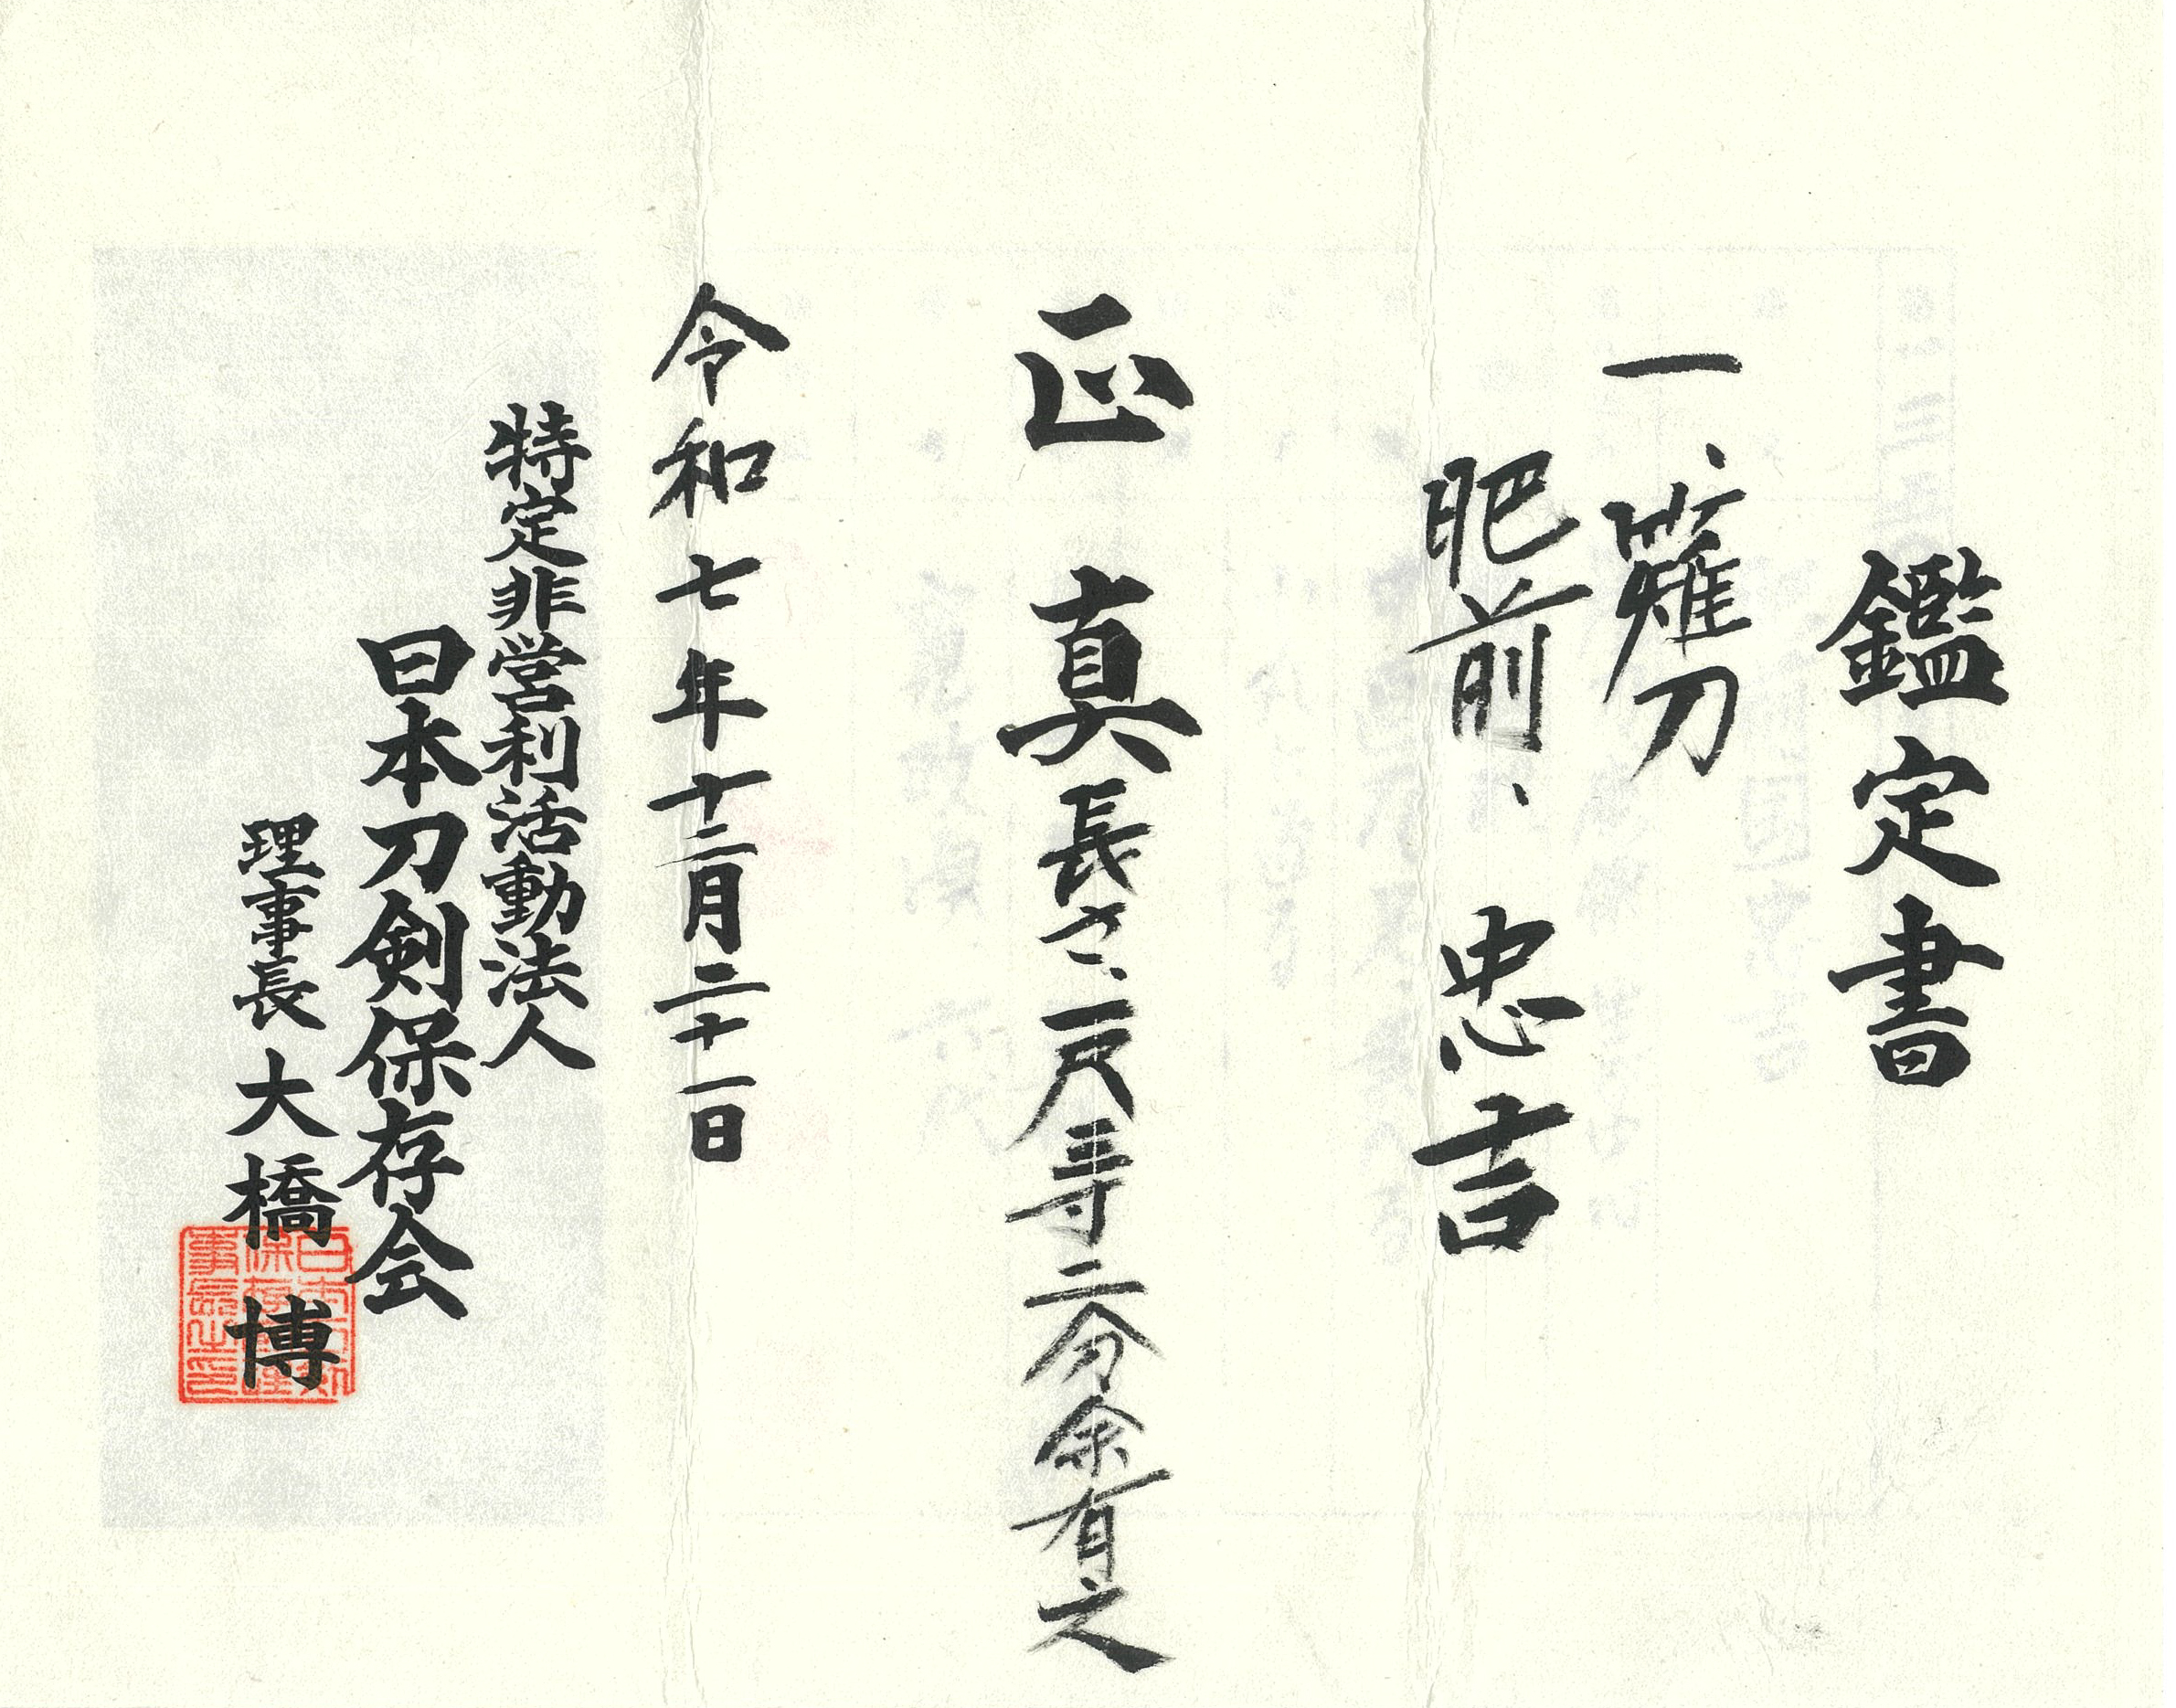 鑑定書
一、薙刀
肥前、忠吉
正真長さ、一尺三寸二分余有之
令和七年十二月二十一日
特定非営利活動法人
日本刀剣保存会
理事長 大橋 博